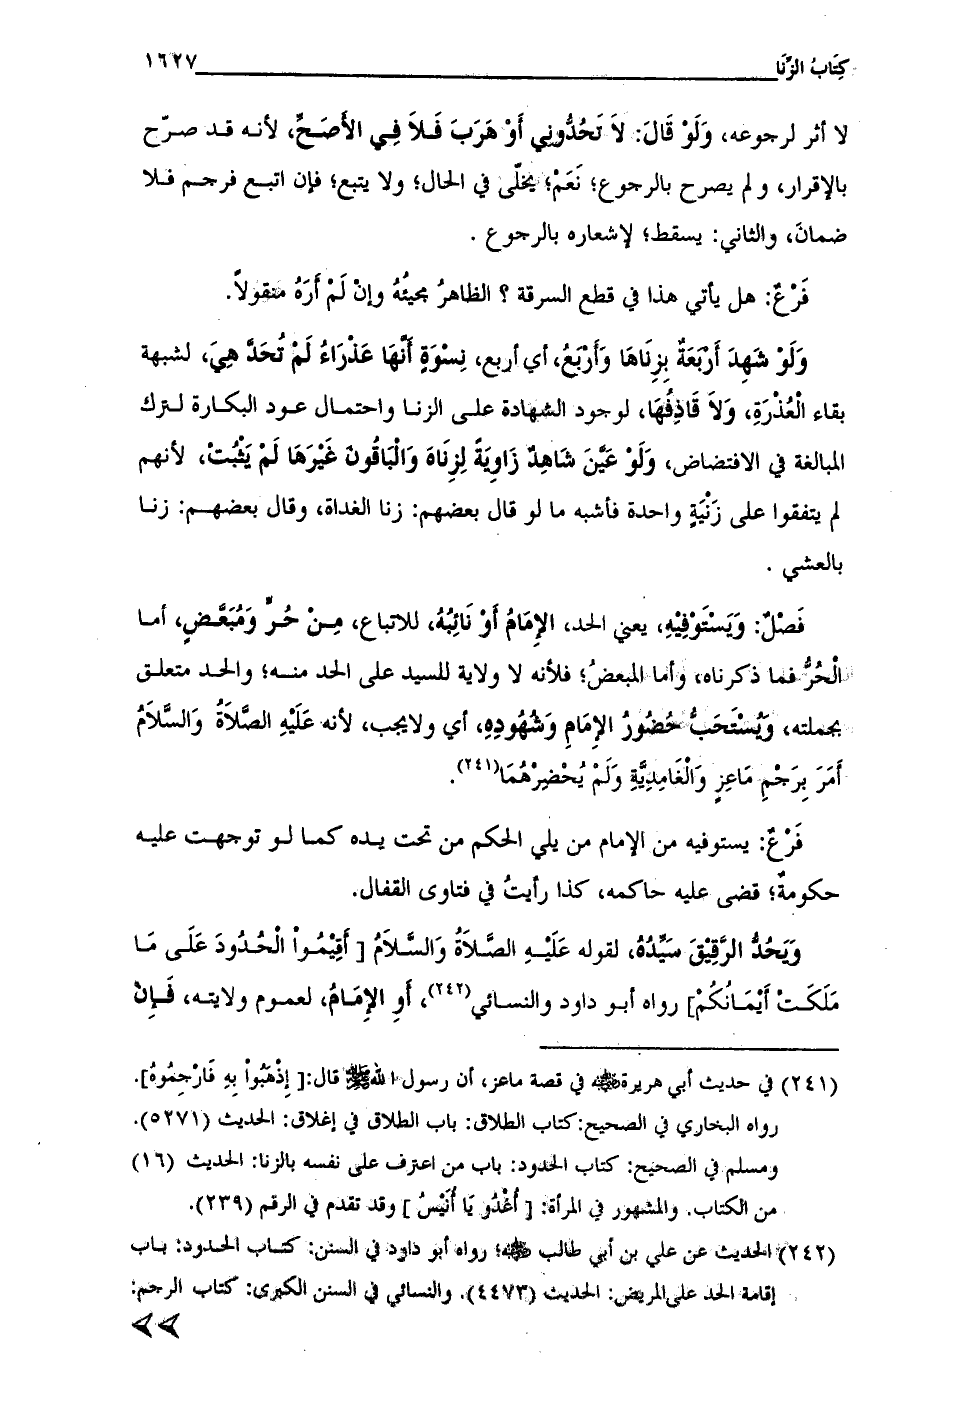 كِتَابُ الزِّنَا ١٦٢٧
لا أثر لرجوعه، وَلَوْ قَالَ: لاَ تَحُدُّونِي أَوْ هَرَبَ فَلاَ فِي الأَصَحِّ، لأنه قد صرّح
بالإقرار، ولم يصرح بالرجوع؛ نَعَمْ؛ يخلّى في الحال؛ ولا يتبع؛ فإن اتبع فرجم فلا
ضمانَ، والثاني: يسقط؛ لإشعاره بالرجوع .
فَرْعٌ: هل يأتي هذا في قطع السرقة ؟ الظاهرُ مجيئُهُ وإنْ لَمْ أَرَهُ منقولاً.
وَلَوْ شَهِدَ أَرْبَعَةٌ بِزِنَاهَا وَأَرْبَعُ، أي أربع، نِسْوَةٍ أَنَّهَا عَذْرَاءُ لَمْ تُحَدَّ هِيَ، لشبهة
بقاء الْعُذْرَةِ، وَلاَ قَاذِفُهَا، لوجود الشهادة على الزنا واحتمال عود البكارة لترك
المبالغة في الافتضاض، وَلَوْ عَيَّنَ شَاهِدٌ زَاوِيَةً لِزِنَاهُ وَالْبَاقُونَ غَيْرَهَا لَمْ يَثْبُتْ، لأنهم
لم يتفقوا على زَنْيَةٍ واحدة فأشبه ما لو قال بعضهم: زنا الغداة، وقال بعضهم: زنا
بالعشي .
فَصْلٌ: وَيَسْتَوْفِيْهِ، يعني الحد، الإِمَامُ أَوْ نَائِبُهُ، للاتباع، مِنْ حُرٍّ وَمُبَعَّضٍ، أما
الْحُرُّ فما ذكرناه، وأما المبعضُ؛ فلأنه لا ولاية للسيد على الحد منه؛ والحد متعلق
بجملته، وَيُسْتَحَبُّ حُضُورُ الإِمَامِ وَشُهُودِهِ، أي ولايجب، لأنه عَلَيْهِ الصَّلاَةُ وَالسَّلاَمُ
أَمَرَ بِرَجْمِ مَاعِزٍ وَالْغَامِدِيَّةِ وَلَمْ يُحْضِرْهُمَا(٢٤١).
فَرْعٌ: يستوفيه من الإمام من يلي الحكم من تحت يده كما لو توجهت عليه
حكومةٌ؛ قضى عليه حاكمه، كذا رأيتُ في فتاوى القفال.
وَيَحُدُّ الرَّقِيْقَ سَيِّدُهُ، لقوله عَلَيْهِ الصَّلاَةُ وَالسَّلاَمُ [ أَقِيْمُواْ الْحُدُودَ عَلَى مَا
مَلَكَتْ أَيْمَانُكُمْ] رواه أبو داود والنسائي(٢٤٢)، أَوِ الإِمَامُ، لعموم ولايته، فَإِنْ
(٢٤١) في حديث أبي هريرة ﷺ في قصة ماعز، أن رسول الله ﷺ قال:[ إِذْهَبُواْ بِهِ فَارْجِمُوهُ].
رواه البخاري في الصحيح:كتاب الطلاق: باب الطلاق في إغلاق: الحديث (٥٢٧١).
ومسلم في الصحيح: كتاب الحدود: باب من اعترف على نفسه بالزنا: الحديث (١٦)
من الكتاب. والمشهور في المرأة: [ أُغْدُو يَا أُنَيْسُ ] وقد تقدم في الرقم (٢٣٩).
(٢٤٢) الحديث عن علي بن أبي طالب ؛ رواه أبو داود في السنن: كتاب الحدود: باب
إقامة الحد على المريض: الحديث (٤٤٧٣). والنسائي في السنن الكبرى: كتاب الرجم: